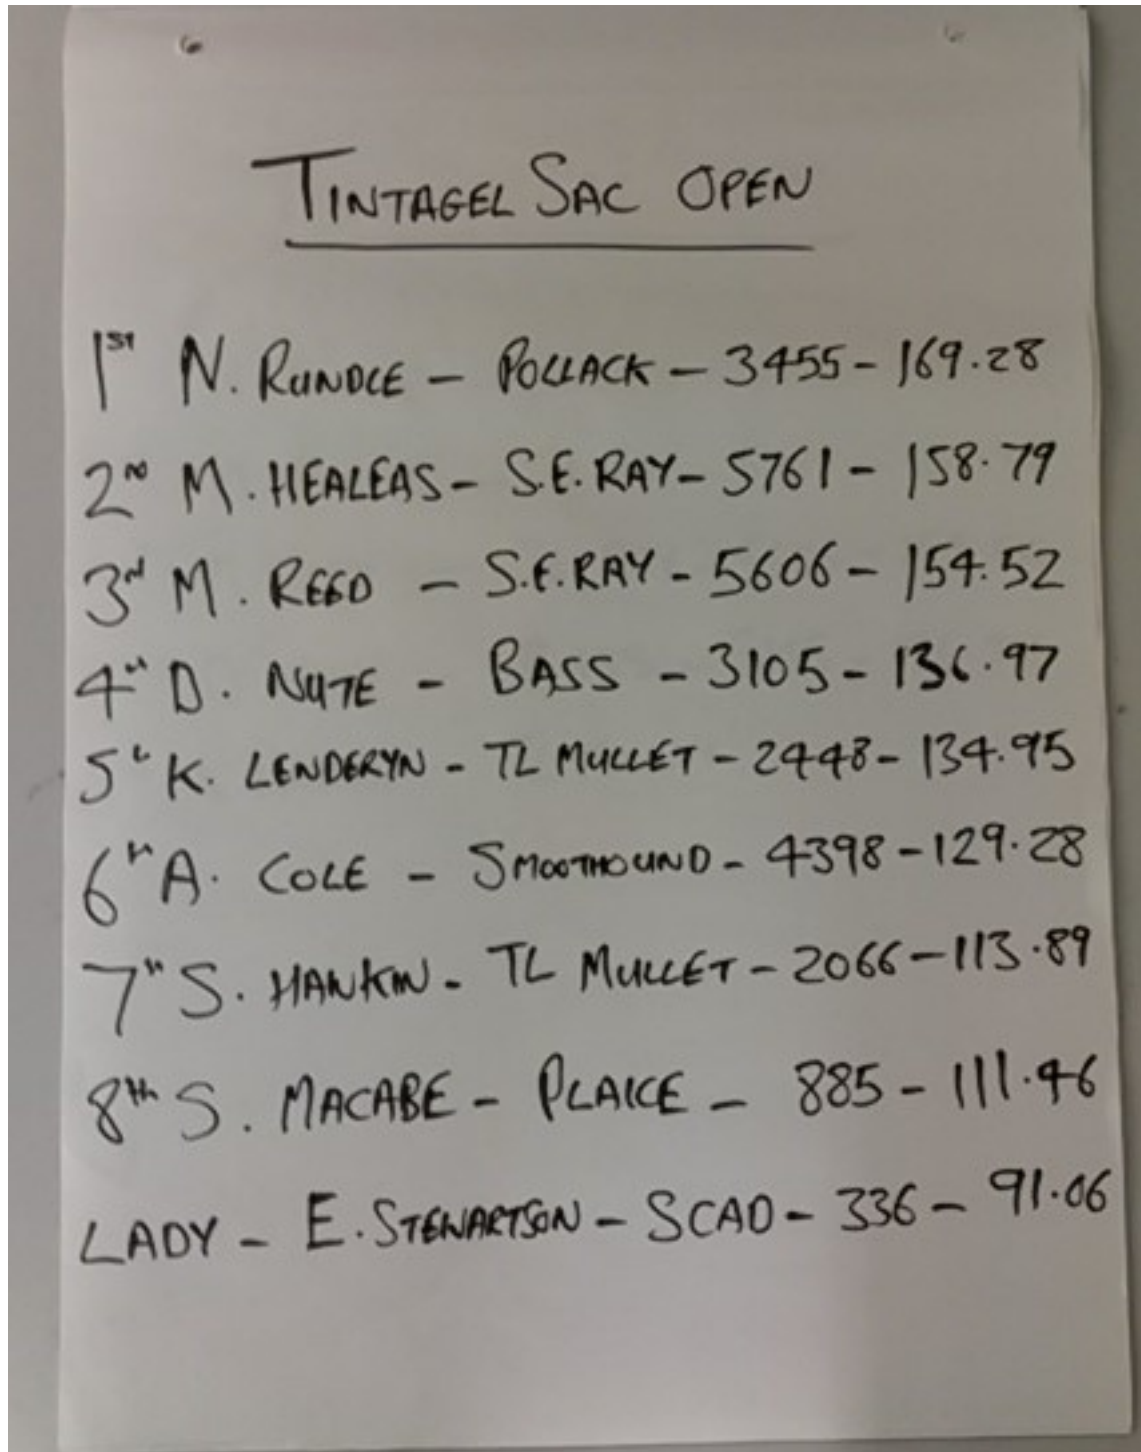 TINTAGEL SAC OPEN
1ST N. RUNDLE - POLLACK - 3455 - 169.28
2ND M. HEALEAS - S.E. RAY - 5761 - 158.79
3rd M. REED - S.E. RAY - 5606 - 154.52
4th D. NUTE - BASS - 3105 - 136.97
5th K. LENDERYN - TL MULLET - 2448 - 134.95
6th A. COLE - SMOOTHOUND - 4398 - 129.28
7th S. HANKIN - TL MULLET - 2066 - 113.89
8th S. MACABE - PLAICE - 885 - 111.46
LADY - E. STEWARTSON - SCAD - 336 - 91.06